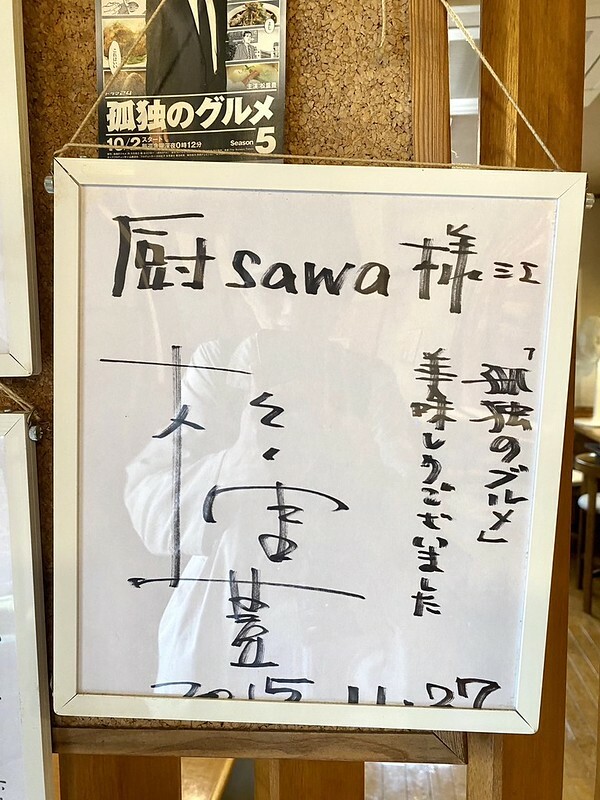 主演 松重豊
孤独のグルメ
10/2スタート
毎週金曜深夜0時12分
Season 5
厨sawa様江
「孤独のグルメ」
美味しうございました
松重豊
2015.11.27